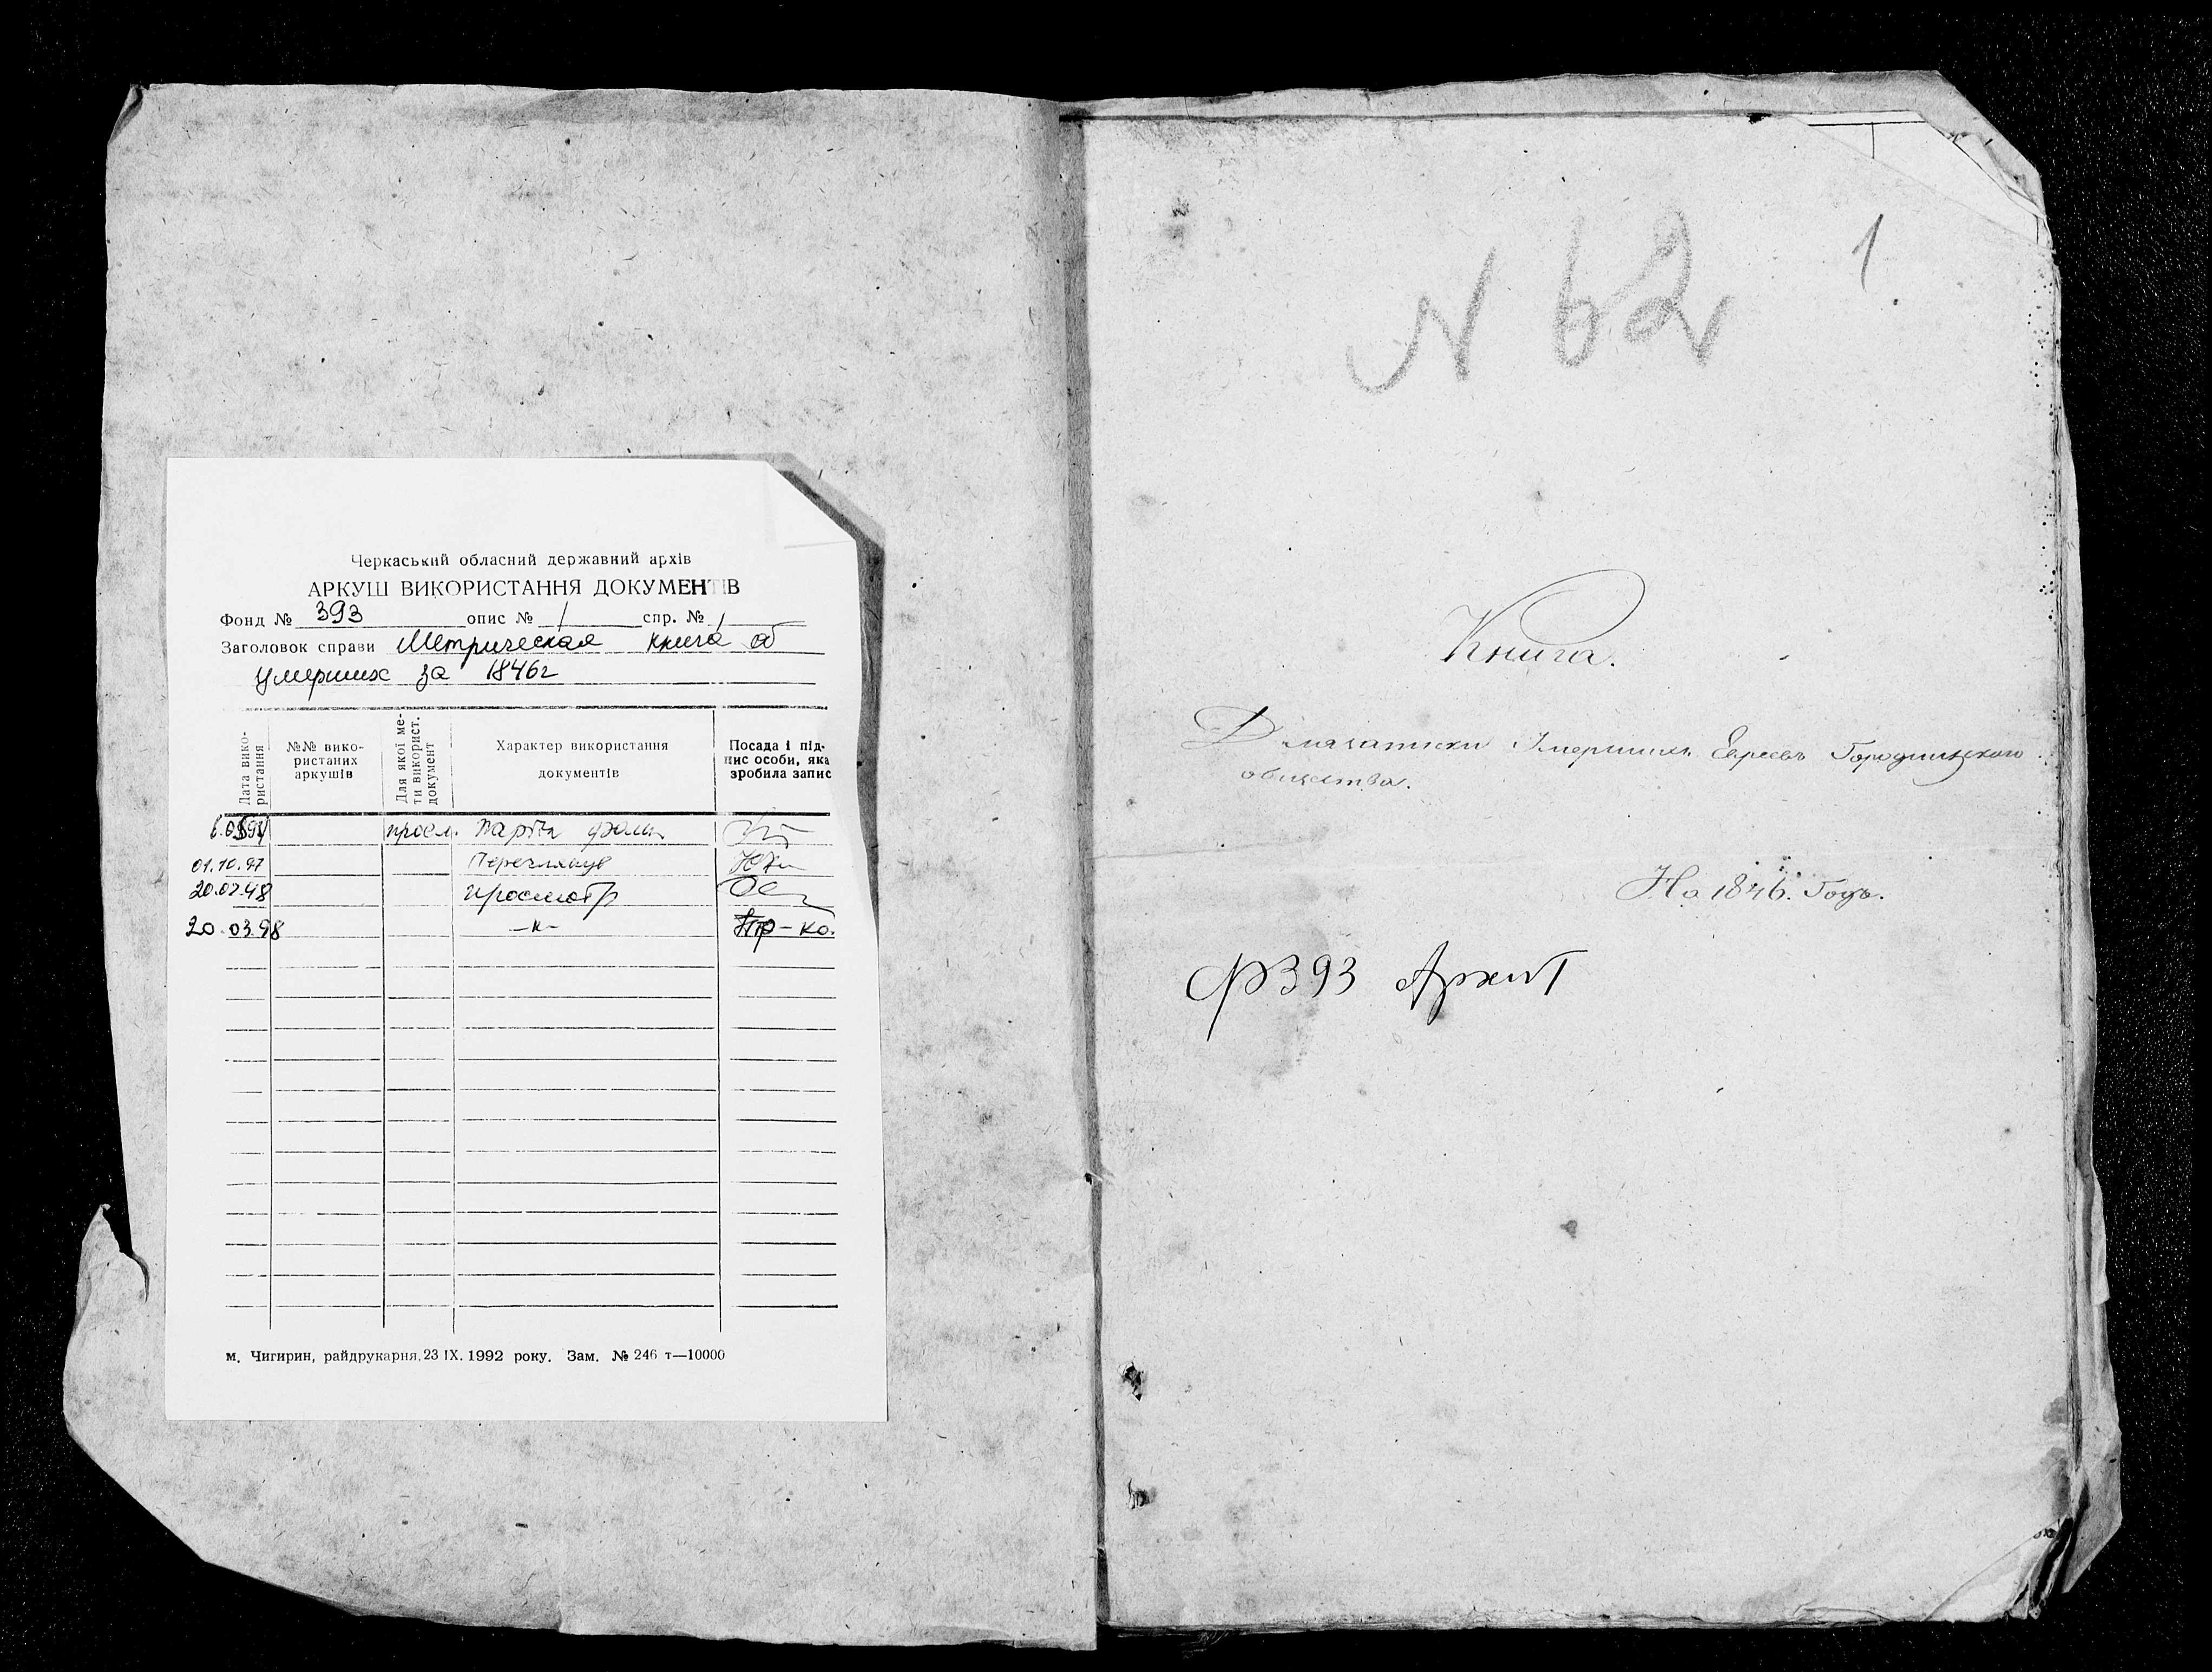 Черкаський обласний державний архів
АРКУШ ВИКОРИСТАННЯ ДОКУМЕНТІВ
Фонд № 393 опис № 1 спр. № 1
Заголовок справи Метрическая книга об
умерших за 1846г
Дата вико-
ристання
№№ вико-
ристаних
аркушів
Для якої ме-
ти використ.
документ
Характер використання
документів
Посада і під-
пис особи, яка
зробила запис
просм.
01.10.97 Переглянув
просмотр
20.03.98 -"-
м. Чигирин, райдрукарня, 23 IX. 1992 року. Зам. № 246 т—10000
1
N 62
Книга.
Для записки Умершихъ Евреевъ Городищскаго
общества.
На 1846. Годъ.
Ф393 Архив